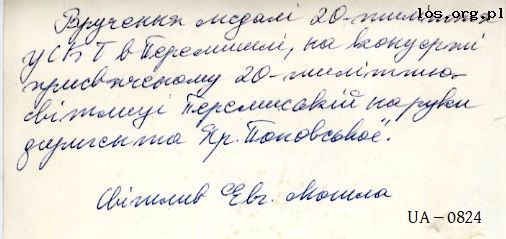 los.org.pl
Вручення медалі 20-тиліття
УСКТ в Перемишлі, на концерті
присвяченому 20-тиліттю
світлиці Перемиській на руки
диригента Яр. Поповської.
Світлив Євг. Мохила
UA-0824